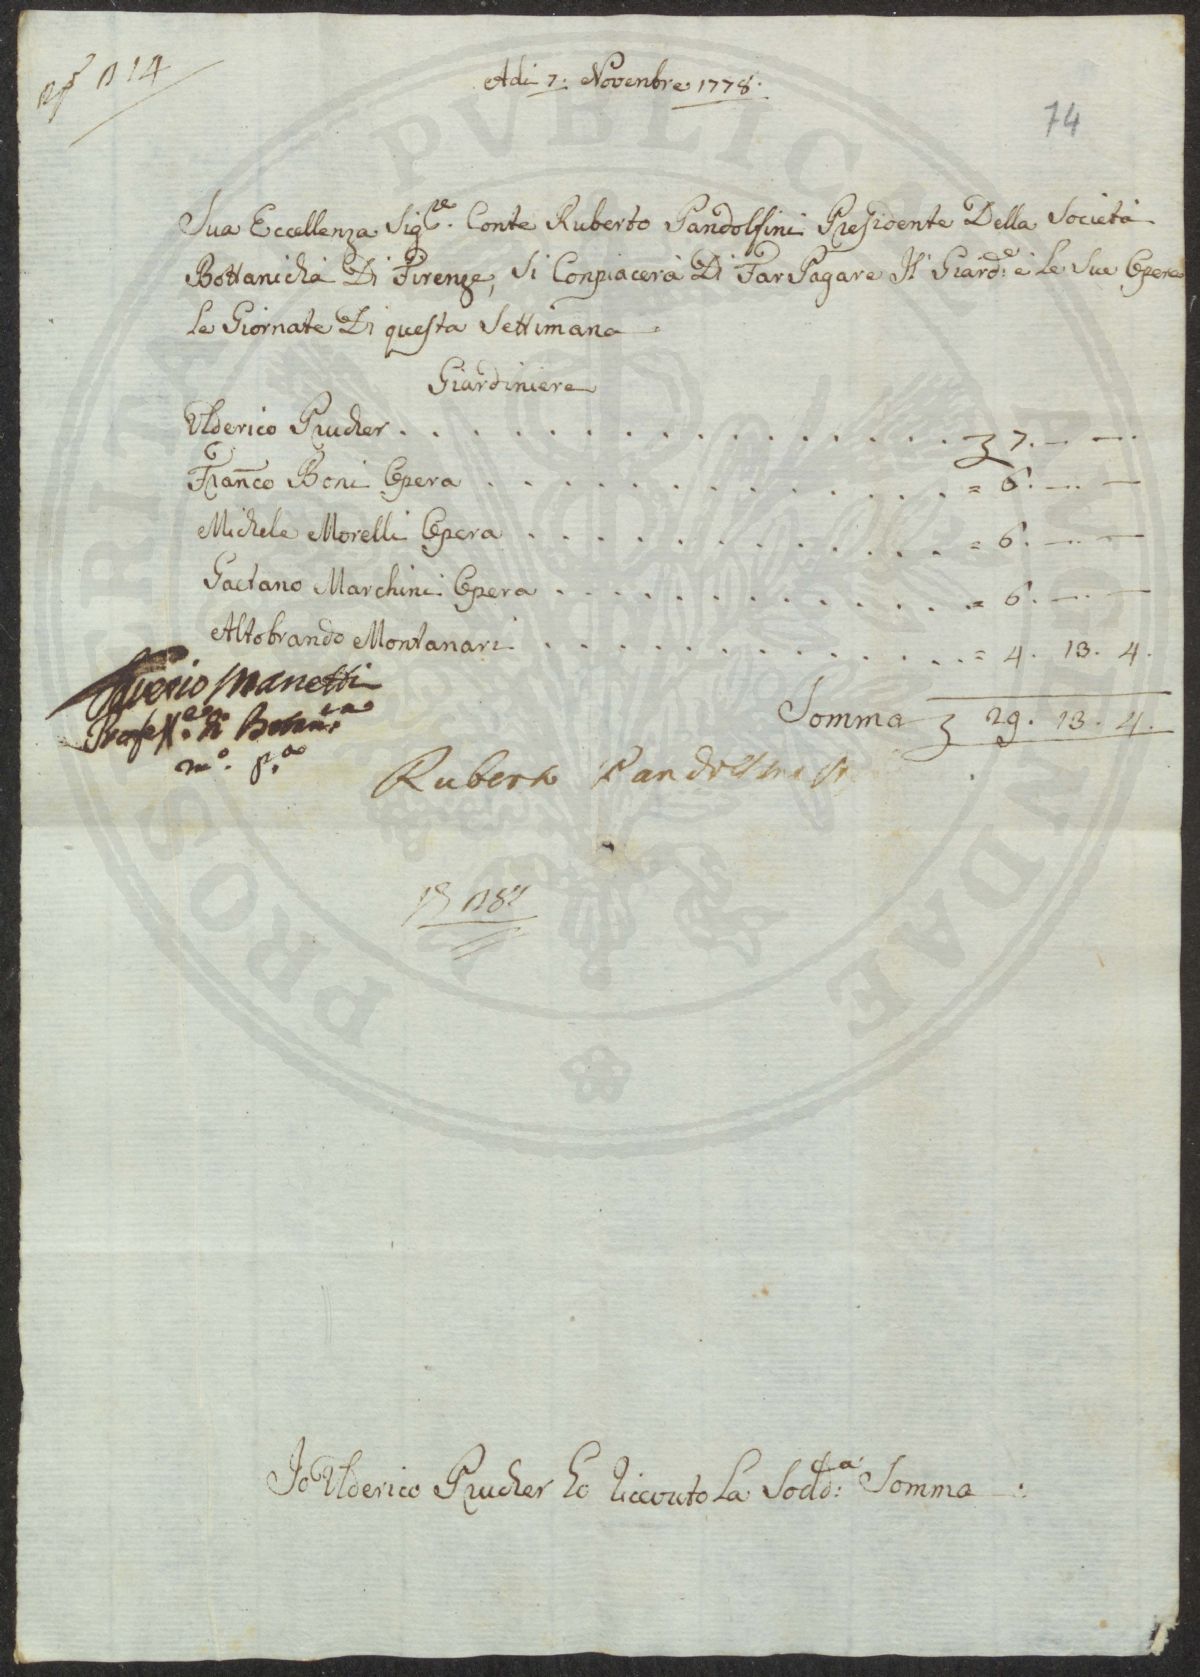 n° 114
Adi 7: Novenbre 1778.
74
Sua Eccellenza Sig.re Conte Ruberto Pandolfini Presidente Della Società
Bottanicha Di Firenze, Si Conpiacerà Di Far Pagare Il Giard.e e Le Sue Opere
Le Giornate Di questa Settimana
Giardiniere
Ulderico Prucher . . . . . . . . . . . . . . . . . 7. — —.
Franco Boni Opera . . . . . . . . . . . . = 6. — —
Michele Morelli Opera . . . . . . . . . . . = 6. — —
Gaetano Marchini Opera . . . . . . . . . . . = 6. — —
Altobrando Montanari . . . . . . . . . . . . = 4. 13. 4.
Saverio Manetti
Profess.e di Botan.ca
m.o p.a
Somma 29. 13. 4.
Ruberto Pandolfini
Io Ulderico Prucher ho riceuto La Sodd.a Somma
PROSPERITATI PVBLICAE AVGENDAE